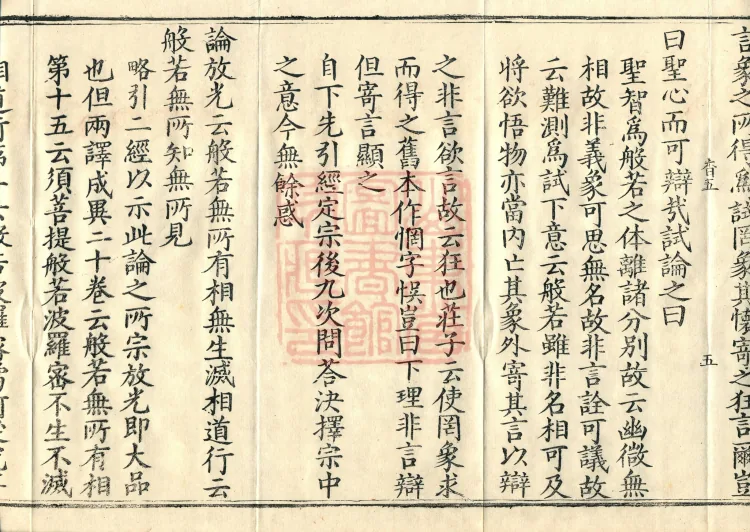 言象之所得爲試罔象其懷寄之狂言爾豈
曰聖心而可辯㢤試論之曰
聖智爲般若之体離諸分別故云幽微無
相故非義象可思無名故非言詮可議故
云難測爲試下意云般若雖非名相可及
將欲悟物亦當內亡其象外寄其言以辯
之非言欲言故云狂也莊子云使罔象求
而得之舊本作惘字悞豈曰下理非言辯
但寄言顯之
自下先引經定宗後九次問荅決擇宗中
之意今無餘惑
論放光云般若無所有相無生滅相道行云
般若無所知無所見
略引二經以示此論之所宗放光即大品
也但兩譯成異二十卷云般若無所有相
第十五云須菩提般若波羅密不生不滅
五